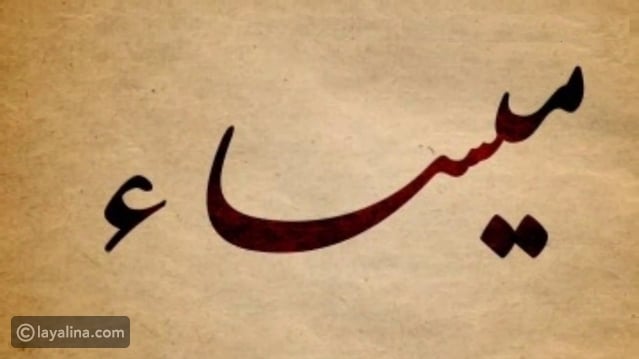 ميساء
© layalina.com